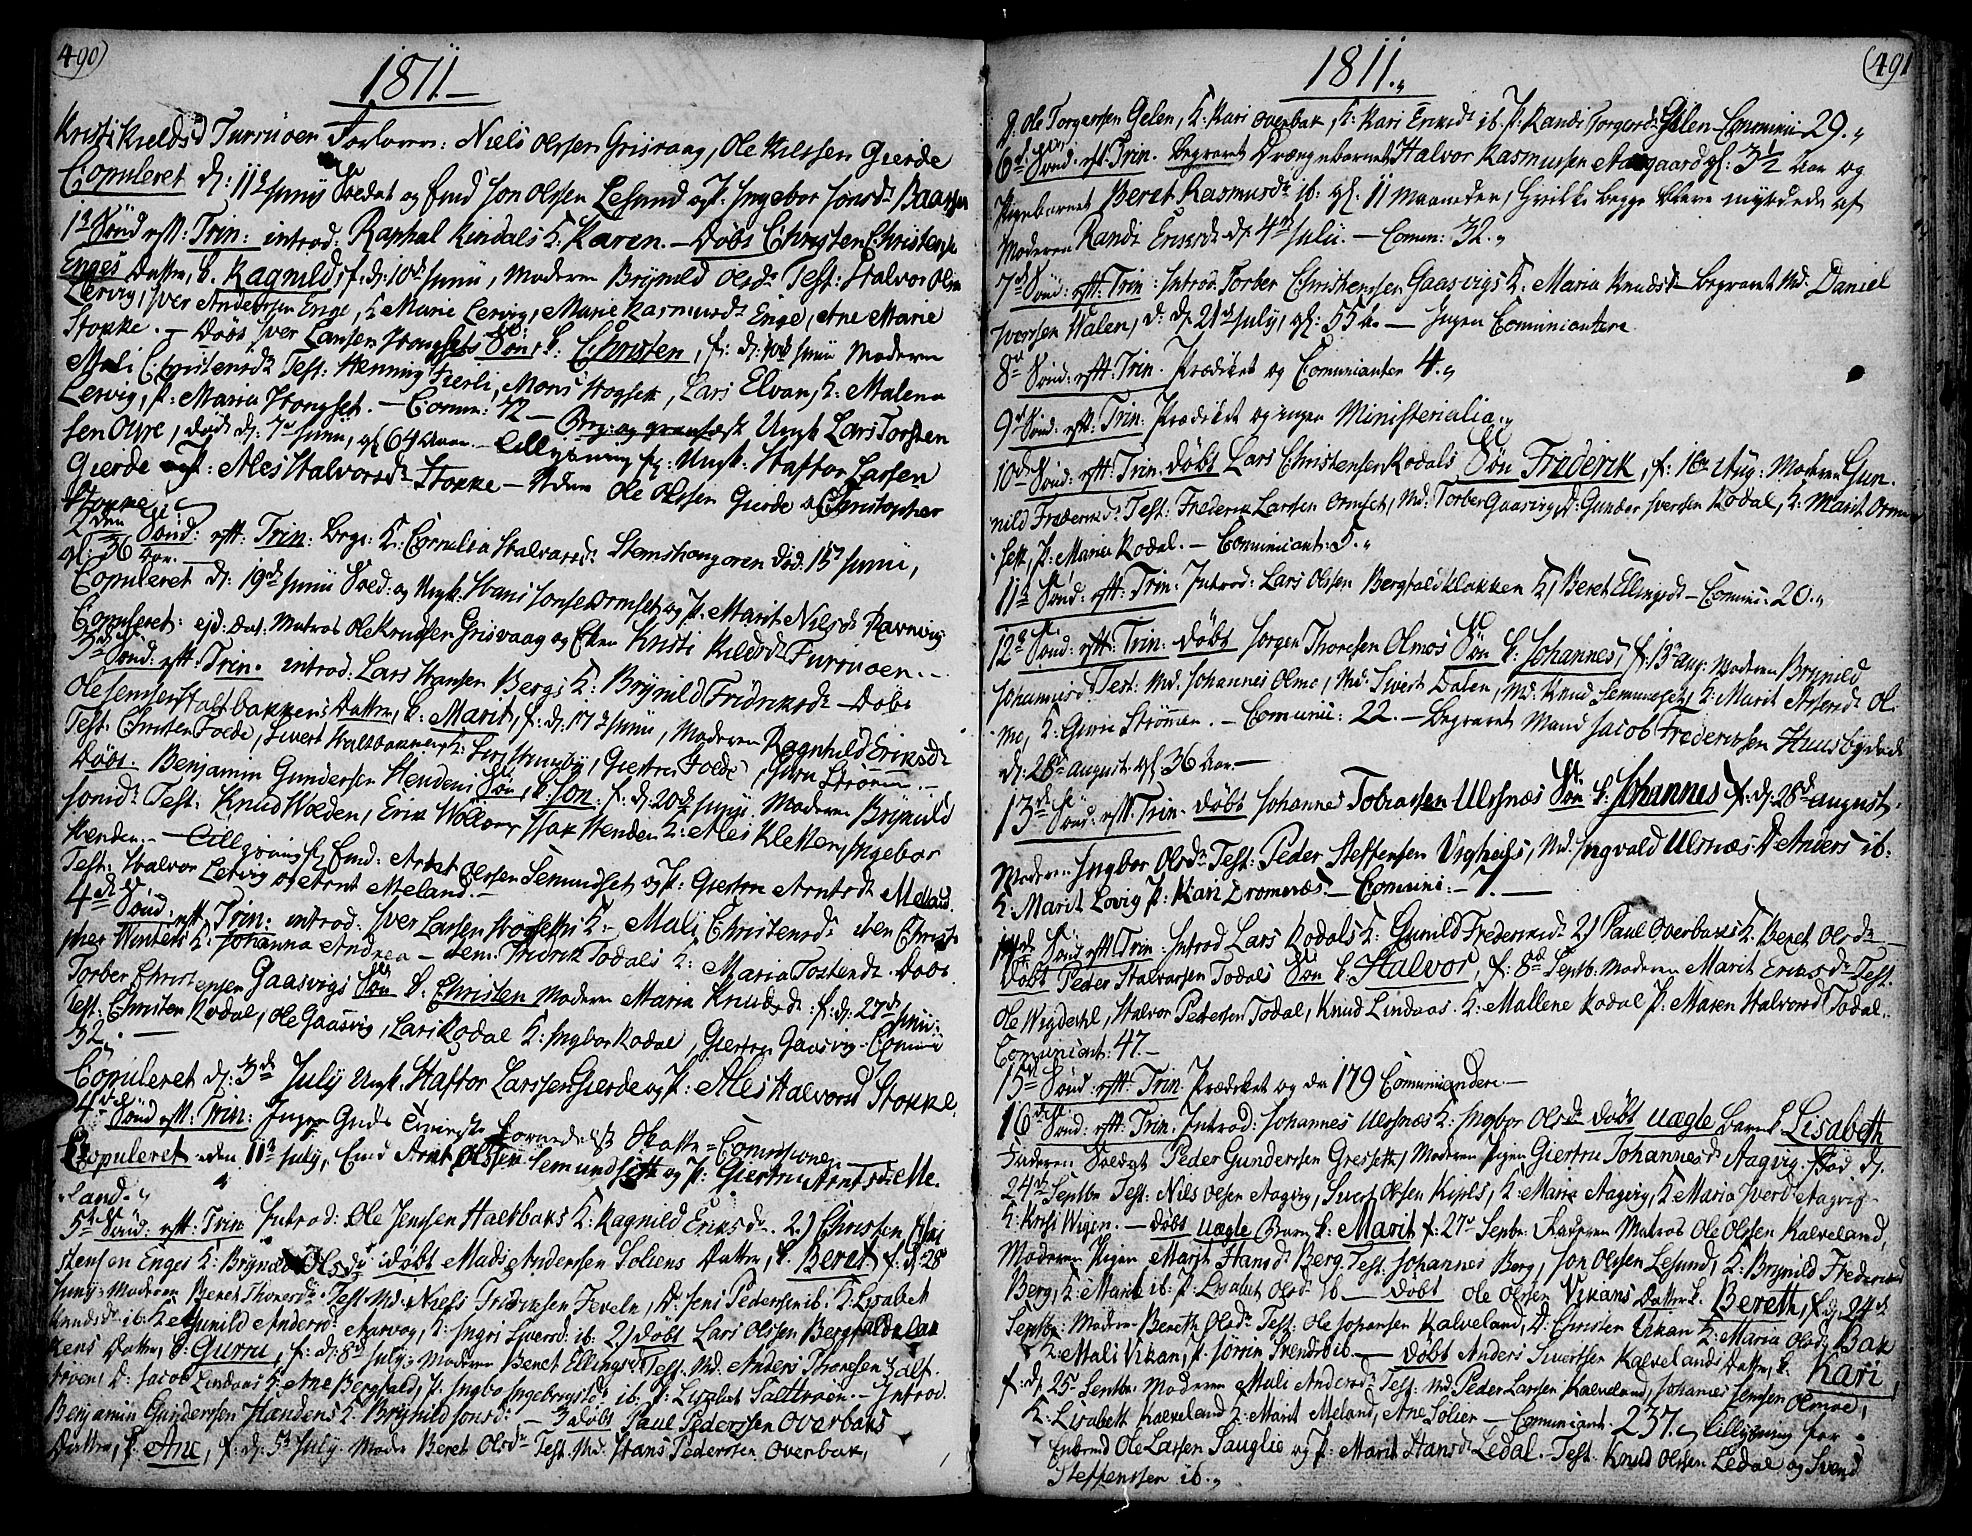 490)
1811.
Kristi Kieldsd Furruoen Forlovere: Niels Olssen Grisvaag, Ole Kielssen Gierde
Copuleret d: 11 Junii Soldat og Emd Jon Olssen Lesund og P: Ingebor Jonsd Baassen
1ste Sønd eft: Trin: introd: Raphal Kindals K: Karen. – Døbt Christen Christens.
Enges Datter, k. Ragnild, f: d: 10 Junii, Moderen Brynild Olsd Test: Halvor Olsen
Lervig, Iver Andersen Enge, K Marie Lervig, Marie Rasmusd Enge, Ane Marie
Stokke. – Døbt Iver Larsen Hongsets Søn, k: Christen, f: d: 10 Junii Moderen
Mali Christensd Test: Henning Hierli, Mons Hogset, Lars Elvan, K: Malena
Lervig, P: Maria Hongset. – Comm: 72 – Begr: Ungk Lars Torsten
sen Oyre, død d: 7 Junii, gl 64 Aar. – Tillysning for: Ungk: Haftor Larsen
Gierde og P: Ales Halvorsd Stokke – Ole Olssen Gierde og Christopher
Stokke
2den Sønd: eft: Trin: Begr: K: Cornelia Halvarsd: Stemshangoren død: 15 Junii,
gl: 36 Aar.
Copuleret d: 19 Junii Sold: og Ungk: Hans Jonsen Ormset og P: Marit Nilsd Ravnvig
Copuleret: ejd: dat: Matros Ole Knudsen Grisvaag og Enken Kristi Kieldsd Furruoen.
3de Sønd: eft: Trin. introd. Lars Hansen Bergs K: Brynild Fridriksd – Døbt
Ole Jensen Haltbakkens Datter, k. Marit, f: d: 17 Junii, Moderen Ragnhild Eriksd
Test: Christen Foede, Sivert Haltbakken, Giertru Foede, Strømen. –
Døbt. Benjamin Gundersen Hendens Søn, k. Jon. f: d: 20 Junii. Moderen Brynild
Jonsd Test: Knud Voeden, Erik Wollen, Isak Henden K: Ales Kletten, Ingebor
Henden. – Tillysning for Emd: Arnt Olssen Semundset og P: Giertru Arntsd Meland.
Test: Halvor Lervig og Arnt Meland. –
4de Sønd: eft: Trin: introd: Iver Larsen Hogsets K: Mali Christensd Christ-
pher Winters K: Johanna Andrea – Fridrik Todals K: Maria Tostensd. Døbt
Torber Christensen Gaasvigs Søn k. Christen Moderen Maria Knudsd: f: d: 27 Junii.
Test: Christen Rodal, Ole Gaasvig, Lars Rodal K: Ingbor Rodal, Giertru Gaasvig. Comm:
32. –
Copuleret d: 3 July Ungk. Haftor Larssen Gierde og P: Ales Halvorsd Stokke.
4de Sønd eft. Trin: Ingen Guds Tieniste formedelst Skatte-Comissionen
Copuleret den 11 July, Emd Arnt Olssen Semundsett og P: Giertru Arntsd Me-
land.
5te Sønd: eft: Trin Introd: Ole Jenssen Haltbaks K: Ragnild Eriksd. 2) Christen Chri
stensen Enges K: Brynild Olsd døbt Mads Anderssen Soliens Datter, k. Beret, f: d: 28
Junii, Moderen Beret Thoresd: Test Md: Niels Fridriksen Feveln, D: Jens Pedersen ib. K: Lisabet
Knudsd ib: K: Gunild Andersd Aarvog, K: Ingri Iversd: ib. 2) Døbt Lars Olssen Bergfaldklak
kens Datter, k: Gurru, f: d: 8 July: Moderen Beret Ellingsd Test: Md: Anders Thoresen
D: Jacob Lindaas K: Ane Bergfald, P: Ingbor Ingebrigtsd: ib. P: Lisabet Salttrøen. – Introd.
Benjamin Gunderssen Hendens K: Brynild Jonsd: – 3 døbt Paul Pederssen Overbaks
Datter, k. Ane, f: d: 5 July. Modr Beret Olsd. Test: Md: Hans Pederssen Overbak,
(491
1811.
Ole Torgerssen Gelen, K: Kari Overbak, K: Kari Eriksd ib. P: Randi Torgersd: Gelen – Communic 29.
6te Sønd: eft: Trin. begravet Drængebarnet Halvor Rasmussen Aasgaard gl: 3½ Aar og
Pigebarnet Beret Rasmusd ib: gl. 11 Maaneder, hvilke begge bleve myrdede af
Moderen Randi Eriksd d: 4 Julii. – Comm: 32.
7de Sønd: eft: Trin: Introd: Torber Christenssen Gaasvigs K: Maria Knudsd – begravet Md: Daniel
Iverssen Walen, d: d: 21 July, gl: 55 Ar – Ingen Comunicantere
8de Sønd: eft: Trin. Prædiket og Comunicanter 4.
9de Sønd: eft: Trin: Prædiket og ingen Ministerialia.
10de Sønd: eft: Trin: døbt Lars Christensen Rodals Søn Frederik, f: 1 Aug: Moderen Gun-
nild Frederiksd: Test: Frederik Larssen Ormset, Md: Torber Gaasvig, D: Gunder Iverssen Rodal, K: Marit Orm-
sett, P: Maria Rodal. – Comunicant: 5.
11te Sønd: eft: Trin: Introd: Lars Olssen Bergfaldklakken K: Beret Ellingsd – Comunic: 20.
12te Sønd: eft: Trin: døbt Jørgen Thoresen Olmos Søn k: Johannes, f: 13 Aug: Moderen Brynild
Johannesd Test: Md: Johannes Olmo, Md: Sivert Dalen, Md: Knud Semundset, K: Marit Ol-
mo, K: Guru Strømmen. – Comunic: 22. – begravet Mand Jacob Frederikssen Huusby døde
d: 28 August. gl: 36 Aar –
13de Sønd: eft: Trin. døbt Johannes Tobiassen Ulsnæs Søn k: Johannes f: d: 28 August.
Moderen Ingbor Olsd: Test: Peder Steffensen Vigheis, Md: Ingvald Ulsnæs D: Anders ib:
K: Marit Lovig P: Kari Dromnæs – Comunic: – 7. –
14de Sønd eft: Trin: Introd Lars Rodals K: Gunild Frederiksd 2) Paul Overbaks K: Beret Olsd –
Døbt Peder Halvorsen Todals Søn k: Halvor, f: 8 Septb: Moderen Marit Eriksd: Test.
Ole Wigdehl, Halvor Pettersen Todal, Knud Lindaas. K: Mallene Rodal P: Maren Halvorsd Todal.
Comunicant: 47. –
15de Sønd: eft: Trin. Prædiket og der 179 Comunicandere. –
16de Sønd: eft: Trin. Introd: Johannes Ulssnæs K: Ingbor Olsd. Døbt uægte Barn k Lisabeth
Faderen Soldat Peder Gunderssen Gressett, Moderen Pigen Giertru Johannesd Aagvig. fød d:
24 Septbr Test: Nils Olsen Aagvig, Sivert Olssen Kipls, K: Marie Aagvig, K: Maria Iversd Aagvig
K: Kristi Wigen. – døbt uægte Barn k: Marit f: 27 Septbr. Faderen Matros Ole Olssen Kalveland,
Moderen Pigen Marit Hansd Berg. Test: Johannes Berg, Jon Olssen Lesund, K: Brynild Frederiksd
Berg, K: Marit ib. P: Lisabet Olsd ib – døbt Ole Olsen Vikans Datter k. Bereth, f: d: 24
Septbr: Moderen Bereth Olsd. Test: Ole Johansen Kalveland, D: Christen Vikan K: Maria Olsd. Bak
K: Mali Vikan, P: Jørrin ib – døbt Anders Sivertsen Kalvelands Datter, k. Kari
f: d: 25 Septbr. Moderen Mali Andersd Test: Md: Peder Larssen Kalveland, Johannes Jenssen Olmoe,
K: Lisabeth Kalveland K: Marit Meland, Ane Solier – Comunicant. 237. – Tillysning for
Enkemd Ole Larssen Sauglie og P: Marit Hansd: Ledal. Test: Knud Olssen Ledal og Svend
Steffenssen ib.